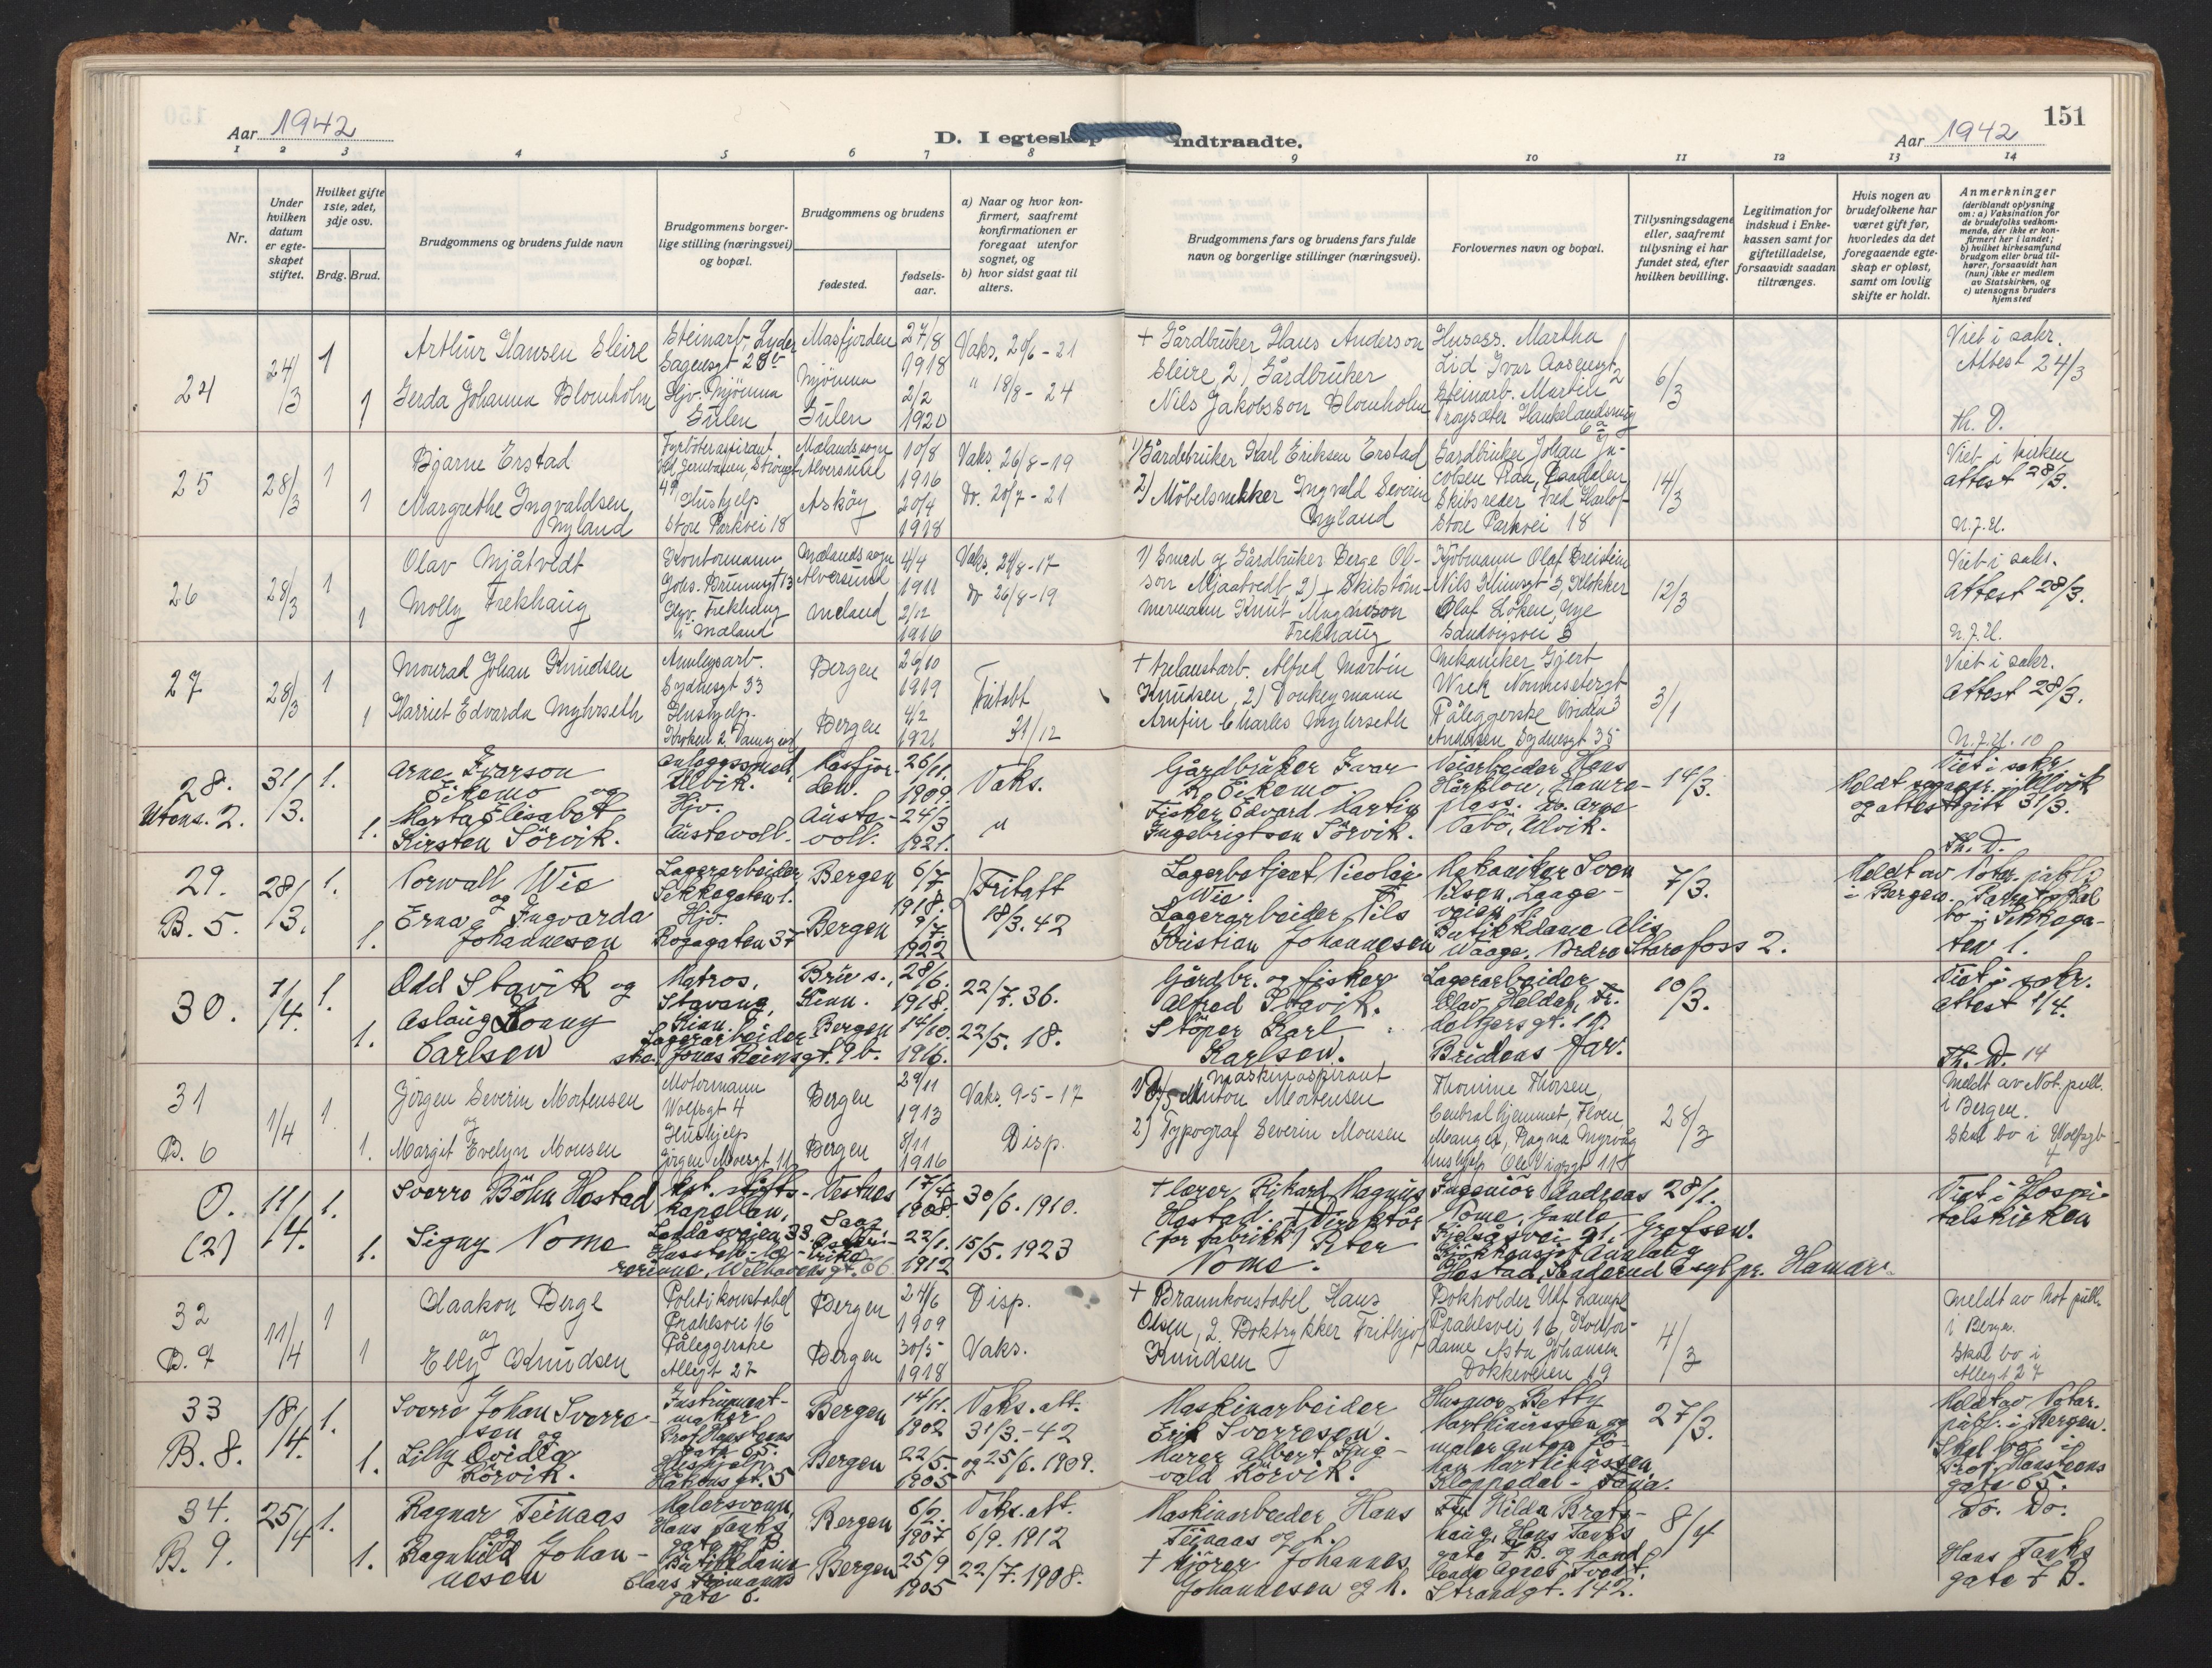 Aar 1942
D. I egteskap indtraadte.
Aar 1942
151
1 2 3 4 5 6 7 8 9 10 11 12 13 14
Nr.
Under hvilken datum er egteskapet stiftet.
Hvilket gifte 1ste, 2det, 3dje osv.
Brdg. Brud.
Brudgommens og brudens fulde navn
Brudgommens borgerlige stilling (næringsvei) og bopæl.
Brudgommens og brudens
fødested.
fødselsaar.
a) Naar og hvor konfirmert, saafremt konfirmationen er foregaat utenfor sognet, og
b) hvor sidst gaat til alters.
Brudgommens fars og brudens fars fulde navn og borgerlige stillinger (næringsvei).
Forlovernes navn og bopæl.
Tillysningsdagene eller, saafremt tillysning ei har fundet sted, efter hvilken bevilling.
Legitimation for indskud i Enkekassen samt for giftetilladelse, forsaavidt saadan tiltrænges.
Hvis nogen av brudefolkene har været gift før, hvorledes da det foregaaende egteskap er opløst, samt om lovlig skifte er holdt.
Anmerkninger
(deriblandt oplysning om: a) Vaksination for de brudefolks vedkommende, der ikke er konfirmert her i landet; b) hvilket kirkesamfund brudgom eller brud tilhører, forsaavidt han (hun) ikke er medlem av Statskirken, og c) utensogns bruders hjemsted
24
24/3
1
Arthur Hansen Sleire
Steinarb. Lyder Sagensgt 28b
Masfjorden
27/8 1918
Vaks. 20/6 - 21
1
Gerda Johanna Blomholm
Hjv. Mjömna Gulen
Mjömna Gulen
2/2 1920
" 18/8 - 24
+ Gårdbruker Hans Anderson Sleire, 2) Gårdbruker Nils Jakobsson Blomholm
Husass. Martha Lid Ivar Aasensgt 2
Steinarb. Martin
6/3
Viet i sakr.
Attest 24/3
Th. D.
25
28/3
1
Bjarne Erstad
Fyrböteraspirant
Mælands sogn Alversund
10/8 1916
Vaks. 26/8 - 19
1
Margrethe Ingvaldsen Nyland
Hushjelp Store Parkvei 18
Asköy
20/4 1918
Do. 20/7 - 21
1) Gårdbruker Karl Eriksen Erstad
2) Möbelsnekker Ingvald Severin Nyland
Gardbruker Johan Jacobsen
Skibsreder
Store Parkvei 18
14/3
Viet i kirken
attest 28/3.
N.J.U.
26
28/3
1
Olav Mjåtvedt
Kontormann Johs. Bruunsgt 13
Mælands sogn Alversund
4/4 1911
Vaks. 24/8 - 17
1
Molly Frekhaug
Hjv. Frekhaug i Mæland
Mæland
2/12 1916
do 26/8 - 19
1) Smed og Gårdbruker Berge Olson Mjaatvedt 2) + Skibstömmermann Knut Magnusson Frekhaug
Kjöbmann Olaf Breistein
Klokker Olaf Löken, Nye Sandvigsvei 3
12/3
Viet i sakr.
attest 28/3.
N.J.U.
27
28/3
1
Monrad Johan Knudsen
Anlegsarb. Sydnesgt 33
Bergen
26/10 1919
Fritatt
1
Harriet Edvarda Myhrseth
Hushjelp. Kroken 2
Bergen
4/2 1921
31/12
Alfred Martin Knudsen, 2) Donkeymann Arnfin Charles Myhrseth
Mekaniker Gjert Wiek Nonnesetergt
Påleggerske Ovidia Andersen Sydnesgt 35
3/1
Viet i sakr.
attest 28/3.
N.J.U. 10
28.
Utens. 2.
31/3.
1.
Arne Ivarson Eikemo og
Anleggssmed, Ulvik.
Masfjorden.
26/11. 1909.
Vaks.
1.
Marta Elisabet Kirsten Sörvik.
Hjv. Austevoll.
Austevoll.
24/3 1921.
"
Gårdbruker Ivar K. Eikemo.
Fisker Edvard Martin Ingebrigtsen Sörvik.
Veiarbeider Hans
14/3.
Meldt sognepr. i Ulvik og attest gitt 31/3.
Viet i sakr.
Th. D.
29.
B. 5.
28/3.
1.
Norwall Wie og
Lagerarbeider Sekkegaten 1.
Bergen
6/7 1918.
Fritatt 18/3. 42
1.
Erna Ingvarda Johannesen
Hjv. Rosegaten 37
Bergen
9/7. 1922
Lagerbetjent Nicolai Wie.
Lagerarbeider Nils Kristian Johannesen
Mekaniker Sven Nilsen, Laageveien
Butikkdame Alis Waage, Nedre Storefoss 2.
7/3.
Meldt av Notar. publ. i Bergen.
bo i Sekkegaten 1.
30.
1/4.
1.
Odd Stavik og
Matros, Stavang, Kinn.
Bru s., Kinn.
28/6. 1918.
22/7. 36.
1.
Aslaug Konny Carlsen
Lagerarbeiderske. Jonas Reinsgt. 9b.
Bergen
14/10. 1916.
22/5. 18.
Gårdbr. og fisker Alfred Stavik.
Stöper Karl Karlsen.
Lagerarbeider Olav
Brudens far.
10/3.
Viet i sakr.
Attest 1/4.
Th. D. 14
31
B. 6
1/4
1
Jörgen Severin Mortensen og
Motormann Wolfsgt 4
Bergen
29/11 1913
Vaks. 9-5-17
1.
Margit Evelyn Monsen
Hushjelp Jörgen Moesgt 11
Bergen
8/11 1916
Disp.
1) Maskinaspirant Anton Mortensen
2) Typograf Severin Monsen
Thomine Thorsen, Centralhjemmet, Floen
Manger, Ragna Myrvåg hushjelp Ole Viggt 118
28/3
Meldt av Not. publ. i Bergen.
Skal bo i Wolfsgt 4
0.
(2)
11/4.
1.
Sverre Böhn Hestad
kapellan,
Vestnes
17/4. 1908.
30/6. 1910.
1.
Signy Nome
Landåsveien 33
22/1. 1912
15/5. 1923
+ Lærer Rikard Magnus Hestad. + Direktör (for fabrikk) Peter Nome.
Ingeniör Andreas Nome, Gamle Kjelsåsvei 91, Grefsen.
28/1.
Viet i Hospitalskirken
32
B. 7
11/4
1
Haakon Berge og
Politikonstabel Prahlsvei 16
Bergen
24/6 1909
Disp.
1
Elly Knudsen
Påleggerske Allegt 27
Bergen
30/5 1918
Vaks.
+ Brannkonstabel Hans Olsen, 2. Boktrykker Frithjof Knudsen
Bokholder Ulf Lampe Prahlsvei 16, Kontordame Asta Johansen Dokkeveien 19
4/3
Meldt av Not. publ. i Bergen.
Skal bo i Allegt 27
33
B. 8.
18/4.
1.
Sverre Johan Sverresen og
Instrumentmaker Prof. Hansteens gate 65.
Bergen
14/11. 1902
Vaks. att. 31/3.-42
1.
Lilly Ovidia Rörvik.
Håkonsgt. 5
Bergen
22/5. 1905
og 25/6. 1909.
Maskinarbeider Erik Sverresen.
Murer Albert Ingvald Rörvik.
Husmor Betty Martinussen og maler Anton
Martinussen, Kloppedal - Fana.
27/3.
Meldt av Notar. publ. i Bergen.
Skal bo i Prof. Hansteens gate 65.
34.
B. 9.
25/4
1.
Ragnar Teinaas og
Malersvenn, Hans Tanks gate 7 B.
Bergen
6/2. 1907
Vaks. att. 6/9. 1912
1.
Ragnhild Johannesen
Butikkdame
gate 6.
Bergen
25/9 1905
22/7. 1908.
Maskinarbeider Hans Teinaas og h.
+ Kjörer Johannes Johannesen og h.
Fru Hilda Bratshaug, Hans Tanks gate 7 B. og
Agnes Tvedt, Strandgt. 142.
8/4
Do. Do.
Hans Tanks gate 7 B.